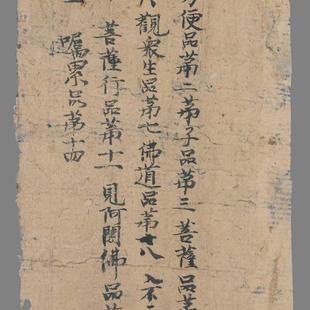 方便品第二弟子品第三菩薩品第
觀衆生品第七佛道品第十八入不二
菩薩行品第十一見阿閦佛品第
囑累品第十四